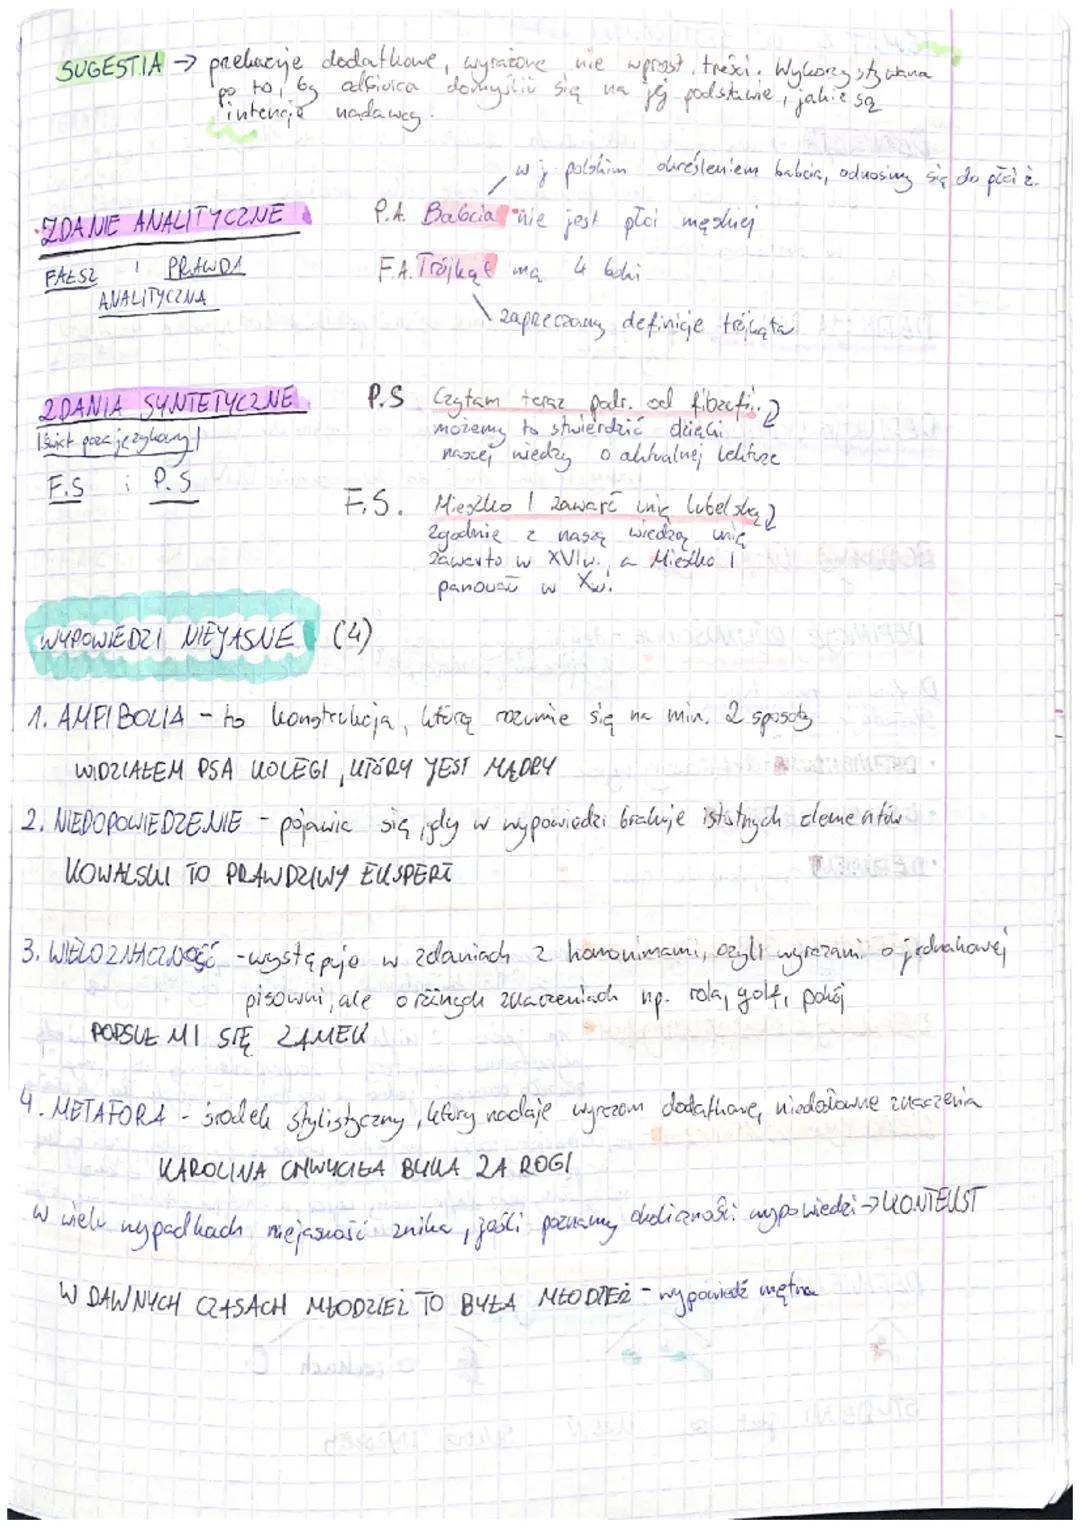 SUGESTIA → prekazuje dodatkowe, wyrażone nie wprost treści. Wykorzystywana
po to, by odbiorca domyślił się na jej podstawie, jakie są
intencje nadawcy.
w j. polskim określeniem babcia, odnosimy się do płci ż.
ZDANIE ANALITYCZNE
P.A. Babcia nie jest płci męskiej
FAŁSZ i PRAWDA
ANALITYCZNA
F.A. Trójkąt ma 4 boki
zaprzeczamy definicje trójkąta
ZDANIA SYNTETYCZNE
P.S Czytam teraz podr. od filozofii.
|świat poza językowy|
możemy to stwierdzić dzięki
naszej wiedzy o aktualnej lekturze
F.S i P.S
F.S. Mieszko I zawarł unię lubelską
zgodnie z naszą wiedzą unię
zawarto w XVI w., a Mieszko I
panował w X w.
WYPOWIEDZI NIEJASNE (4)
1. AMFIBOLIA - to konstrukcja, którą rozumie się na min. 2 sposoby
WIDZIAŁEM PSA KOLEGI, KTÓRY JEST MĄDRY
2. NIEDOPOWIEDZENIE - pojawia się, gdy w wypowiedzi brakuje istotnych elementów
KOWALSKI TO PRAWDZIWY EKSPERT
3. WIELOZNACZNOŚĆ - występuje w zdaniach z homonimami, czyli wyrazami o jednakowej
pisowni, ale o różnych znaczeniach np. rola, golf, pokój
POPSUŁ MI SIĘ ZAMEK
4. METAFORA - środek stylistyczny, który nadaje wyrazom dodatkowe, niedosłowne znaczenia
KAROLINA CHWYCIŁA BYKA ZA ROGI
W wielu wypadkach niejasność znika, jeśli poznamy okoliczności wypowiedzi → KONTEKST
W DAWNYCH CZASACH MŁODZIEŻ TO BYŁA MŁODZIEŻ - wypowiedź mętna